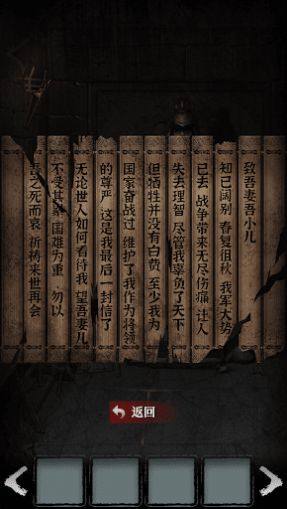 致吾妻吾小儿
知己阔别 春复徂秋 我军大势
已去 战争带来无尽伤痛 让人
失去理智 尽管我辜负了天下
但牺牲并没有白费 至少我为
国家奋战过 维护了我作为将领
的尊严 这是我最后一封信了
无论世人如何看待我 望吾妻儿
不受其 国难为重 勿以
吾之死而哀 祈祷来世再会
返回